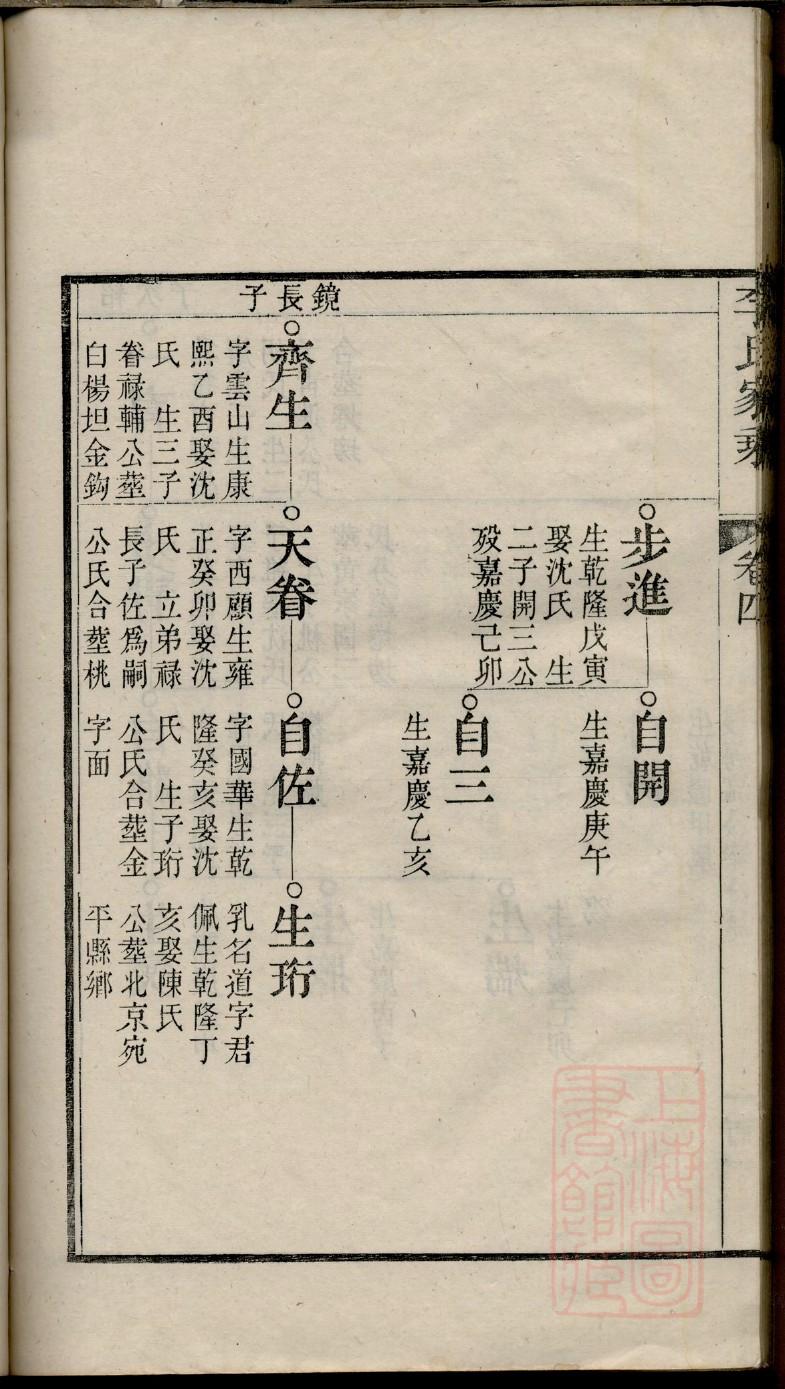 李氏家乘
卷四
步進
生乾隆戊寅
娶沈氏　生
二子開三公
殁嘉慶己卯
自開
生嘉慶庚午
自三
生嘉慶乙亥
鏡長子
齊生
字雲山生康
熙乙酉娶沈
氏　生三子
眷祿輔公塟
白楊坦金鈎
天眷
字西顧生雍
正癸卯娶沈
氏　立弟祿
長子佐爲嗣
公氏合塟桃
自佐
字國華生乾
隆癸亥娶沈
氏　生子珩
公氏合塟金
字面
生珩
乳名道字君
佩生乾隆丁
亥娶陳氏
公塟北京宛
平縣鄉
上海圖
書館藏